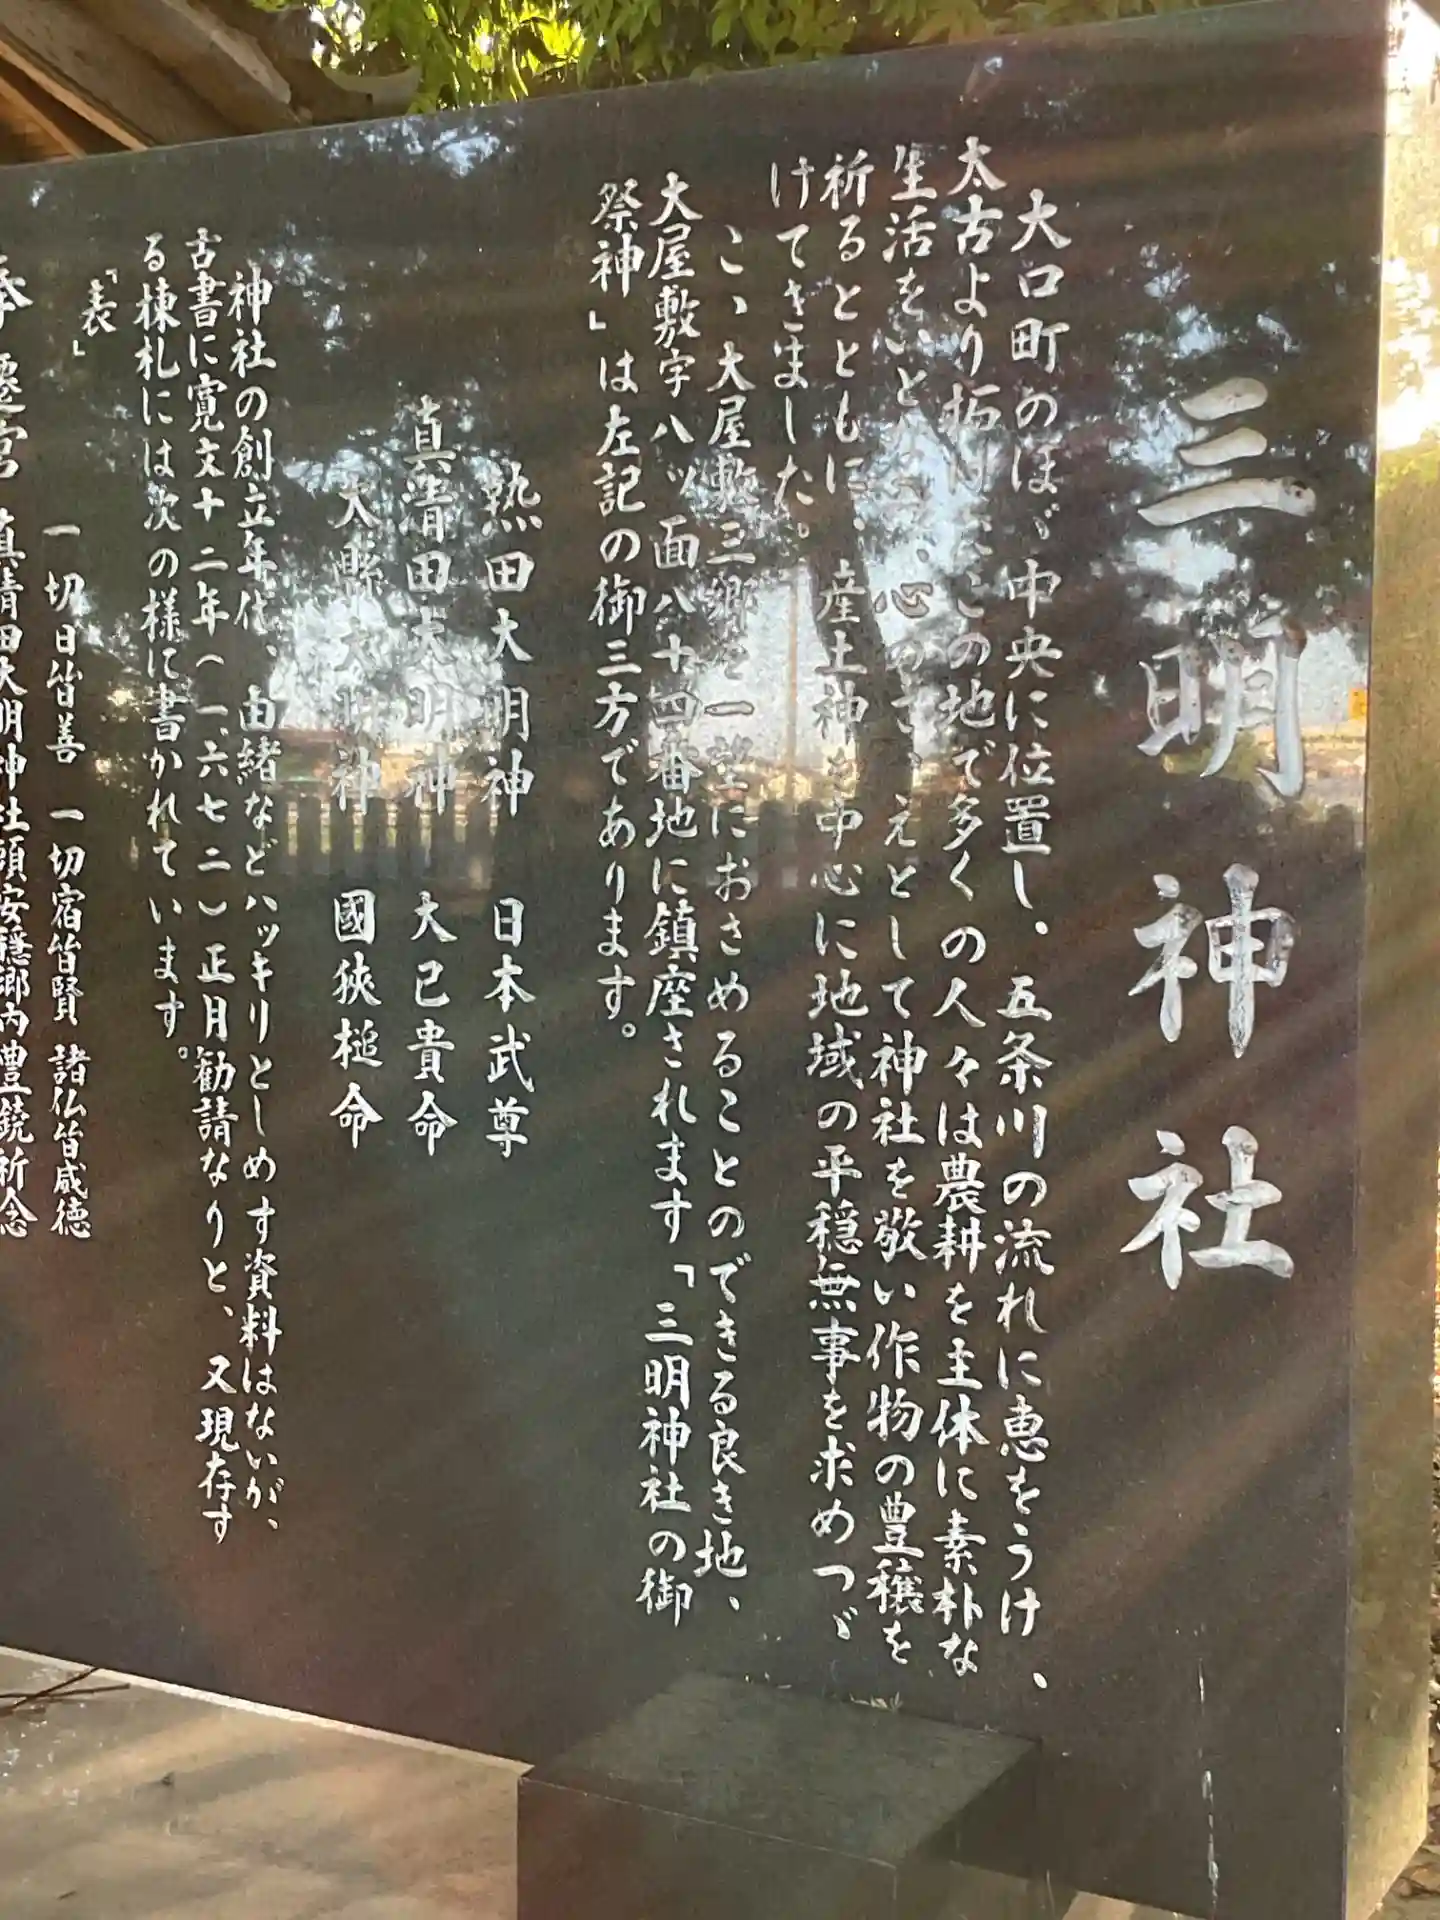 三明神社
大口町のほゞ中央に位置し、五条川の流れに恵をうけ、
太古より拓けたこの地で多くの人々は農耕を主体に素朴な
生活をいとなみ、心のささえとして神社を敬い作物の豊穣を
祈るとともに、産土神を中心に地域の平穏無事を求めつゞ
けてきました。
こゝ大屋敷三郷を一望におさめることのできる良き地、
大屋敷字八ッ面八十四番地に鎮座されます「三明神社の御
祭神」は左記の御三方であります。
熱田大明神 日本武尊
真清田大明神 大己貴命
大縣大明神 國狹槌命
神社の創立年代、由緒などハッキリとしめす資料はないが、
古書に寛文十二年(一、六七二)正月勧請なりと、又現存す
る棟札には次の様に書かれています。
「表」
一切日皆善 一切宿皆賢 諸仏皆威徳
奉遷宮 真清田大明神社頭安穏郷内豊饒祈念